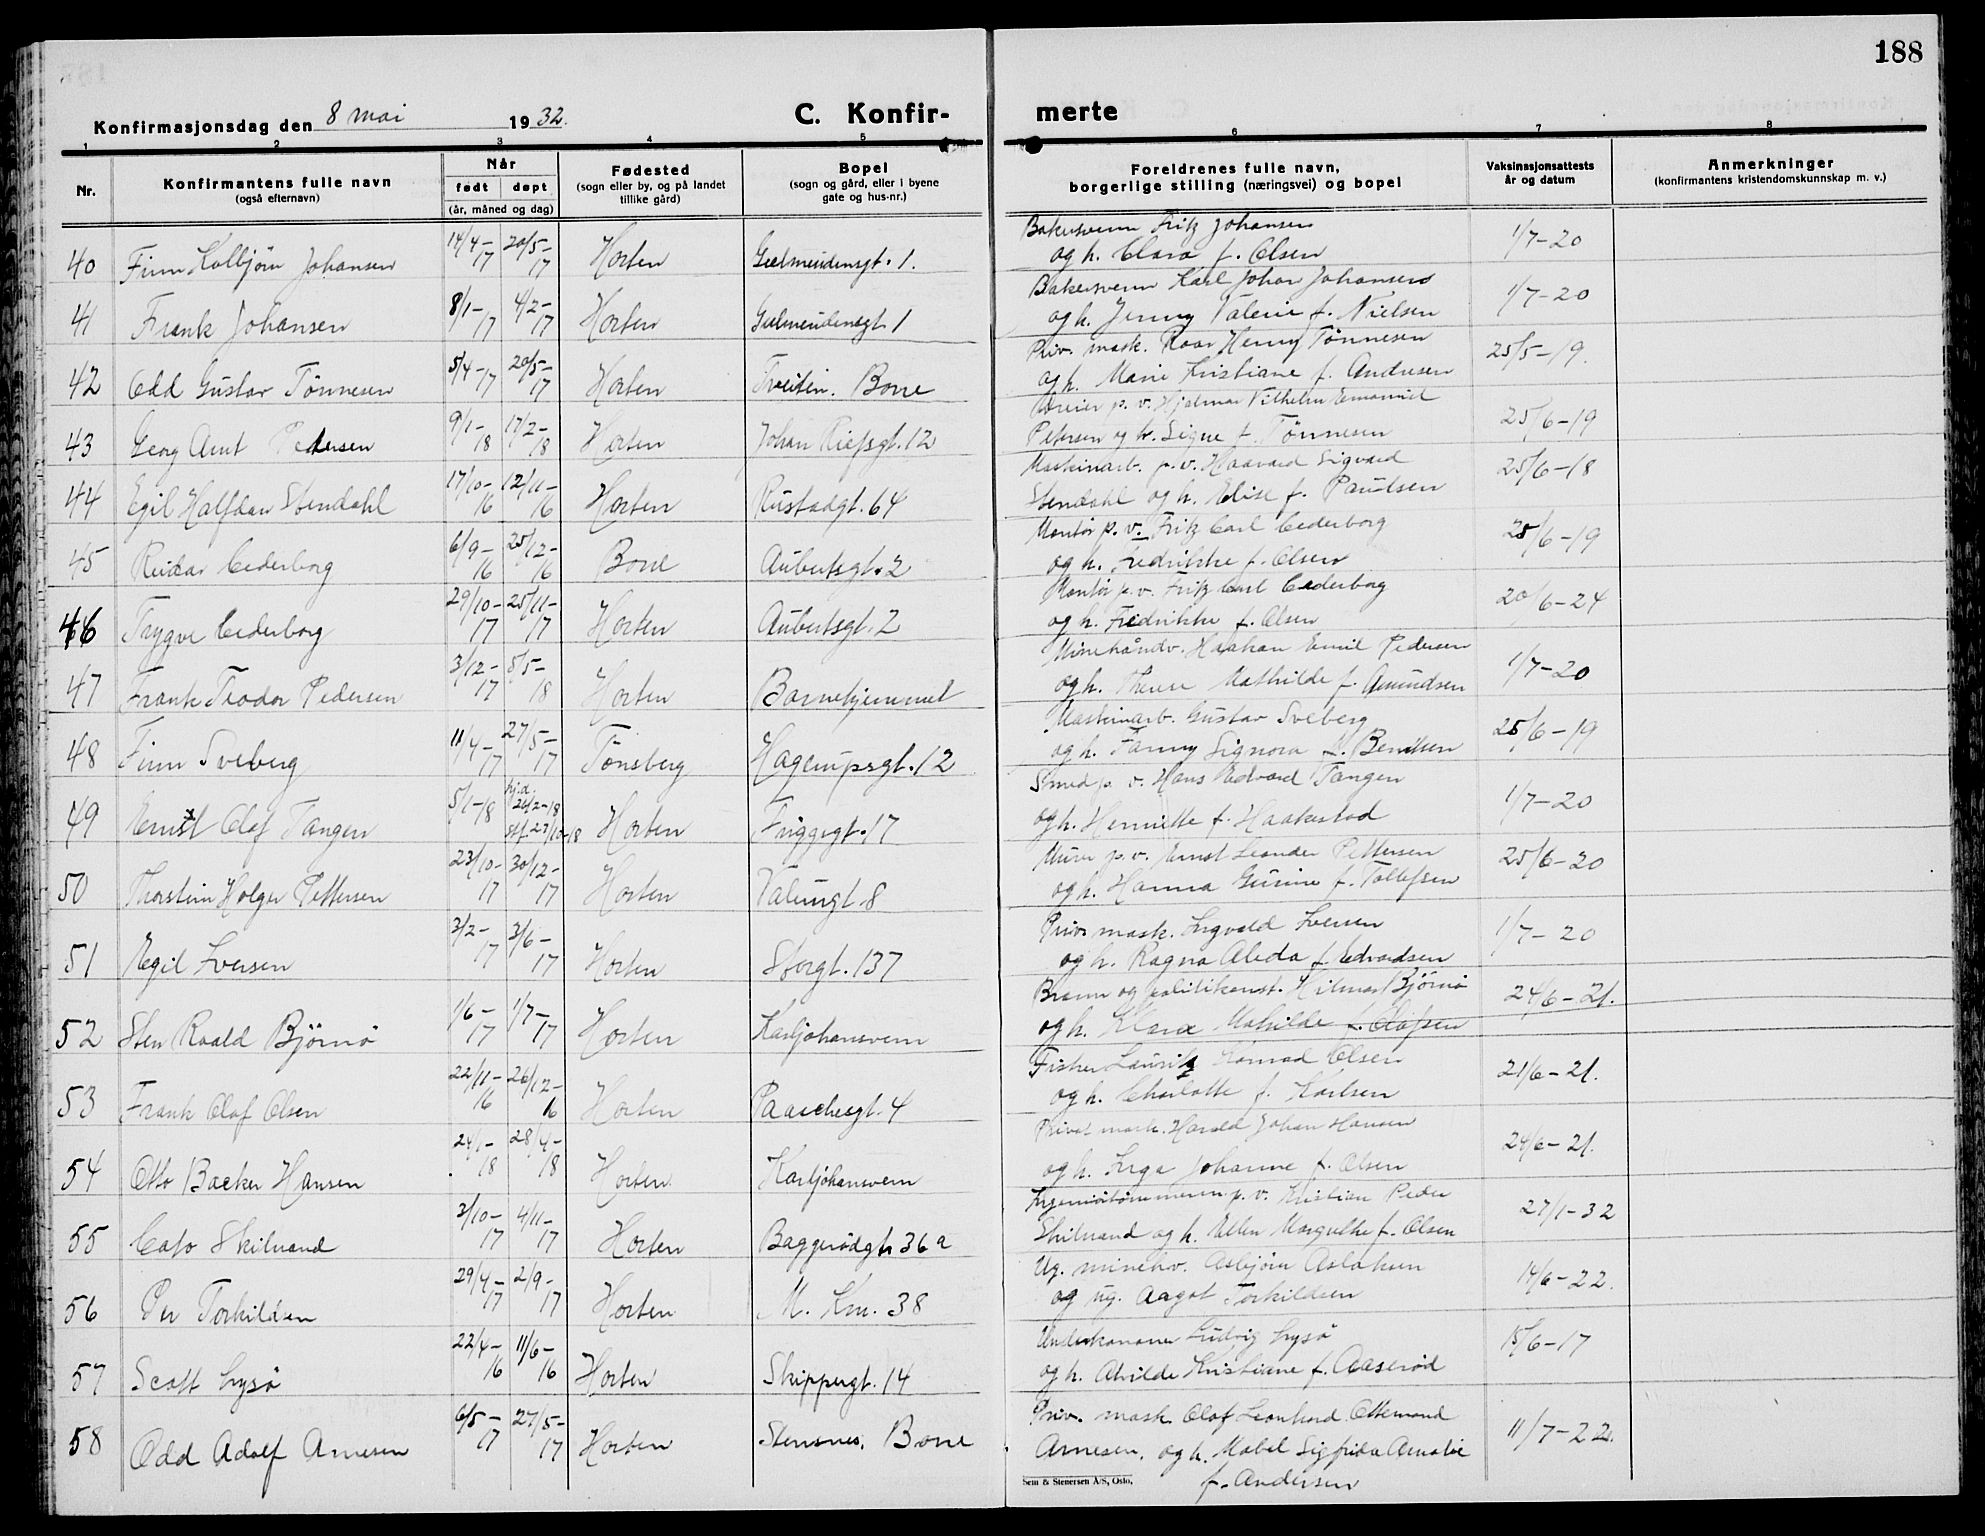 188
Konfirmasjonsdag den 8 mai 1932.
C. Konfir-
merte
1 2 3 4 5 6 7 8
Nr.
Konfirmantens fulle navn
(også efternavn)
Når
født døpt
(år, måned og dag)
Fødested
(sogn eller by, og på landet
tillike gård)
Bopel
(sogn og gård, eller i byene
gate og hus-nr.)
Foreldrenes fulle navn,
borgerlige stilling (næringsvei) og bopel
Vaksinasjonsattests
år og datum
Anmerkninger
(konfirmantens kristendomskunnskap m. v.)
40 Finn Kolbjørn Johansen 14/4-17 20/5-17 Horten Gulmeudensgt. 1. Bakersvenn Fritz Johansen 1/7-20
og h. Clara f. Olsen
41 Frank Johansen 8/1-17 4/2-17 Horten Gulmeudensgt 1 Bakersvenn Karl Johan Johansen 1/7-20
og h. Jenny Valerie f. Nielsen
42 Odd Gustav Tönnesen 5/4-17 20/5-17 Horten Tveiten. Borre Priv. mask. Roar Henry Tönnesen 25/5-19.
og h. Marie Kristiane f. Andresen
43 Georg Arnt Pedersen 9/1-18 17/2-18 Horten Johan Riefsgt. 12 p. v. Hjalmar Vilhelm Emanuel 25/6-19
Petersen og h. Signe f. Tönnesen
44 Egil Halfdan Stendahl 17/10-16 12/11-16 Horten Rustadgt. 64 Maskinarb. p. v. Haavard Sigvard 25/6-18
Stendahl og h. Elise f. Paulsen
45 Reidar Cederborg 6/9-16 25/12-16 Borre Aubertsgt. 2 Montör p. v. Fritz Carl Cederborg 25/6-19
og h. Fredrikke f. Olsen
46 Trygve Cederborg 29/10-17 25/11-17 Horten Aubertsgt. 2 Montör p. v. Fritz Carl Cederborg 20/6-24
og h. Fredrikke f. Olsen
47 Frank Teodor Pedersen 3/12-17 5/5-18 Horten Barnehjemmet Minehåndv. Haakan Emil Pedersen 1/7-20
og h. Therese Mathilde f. Amundsen
48 Finn Sveberg 11/4-17 27/5-17 Tönsberg Hagerupsgt. 12 Maskinarb. Gustav Sveberg 25/6-19
og h. Fanny Signora f. Bendtsen
49 Ernst Olaf Tangen 5/1-18 hj.d. 26/2-18 Stf. 27/10-18 Horten Friggsgt. 17 Smed p. v. Hans Edvard Tangen 1/7-20
og h. Henriette f. Haakestad
50 Thorstein Holger Pettersen 23/10-17 30/12-17 Horten Valeurgt. 8 Murer p. v. Ernst Leander Pettersen 25/6-20
og h. Hanna Gurine f. Tollefsen
51 Egil Iversen 3/2-17 3/6-17 Horten Storgt. 137 Priv. mask. Ingvald Iversen 1/7-20
og h. Ragna Alida f. Edvardsen
52 Sten Roald Björnö 1/6-17 1/7-17 Horten Karljohansvern Brann og politikonst. Hilmar Björnö 24/6-21.
og h. Klara Mathilde f. Olafsen
53 Frank Olaf Olsen 22/11-16 26/12-16 Horten Paaschesgt. 4 Fisker Lauritz Konrad Olsen 21/6-21.
og h. Charlotte f. Karlsen
54 Otto Backer Hansen 24/1-18 28/4-18 Horten Karljohansvern Privat mask. Harald Johan Hansen 24/6-21.
og h. Inga Johanne f. Olsen
55 Cato Skilnand 3/10-17 4/11-17 Horten Baggerödgt. 36a p. v. Kristian Peder 27/1-32
Skilnand og h. Ellen Margrethe f. Olsen
56 Per Torkildsen 29/4-17 2/9-17 Horten M. Km. 38 Ug. minehv. Asbjörn Aslaksen 14/6-22.
og ug. Aagot Torkildsen
57 Scott Lysö 22/4-16 11/6-16 Horten Skippergt. 14 Underkanoner Ludvig Lysö 15/6-17
og h. Alvilde Kristiane f. Aaseröd
58 Odd Adolf Arnesen 6/5-17 27/5-17 Horten Stensnes, Borre Priv. mask. Olaf Leonhard Ottemand 11/7-22.
Arnesen, og h. Mabel Sigfrida Amalie
f. Andersen
Sem & Stenersen A/S, Oslo.